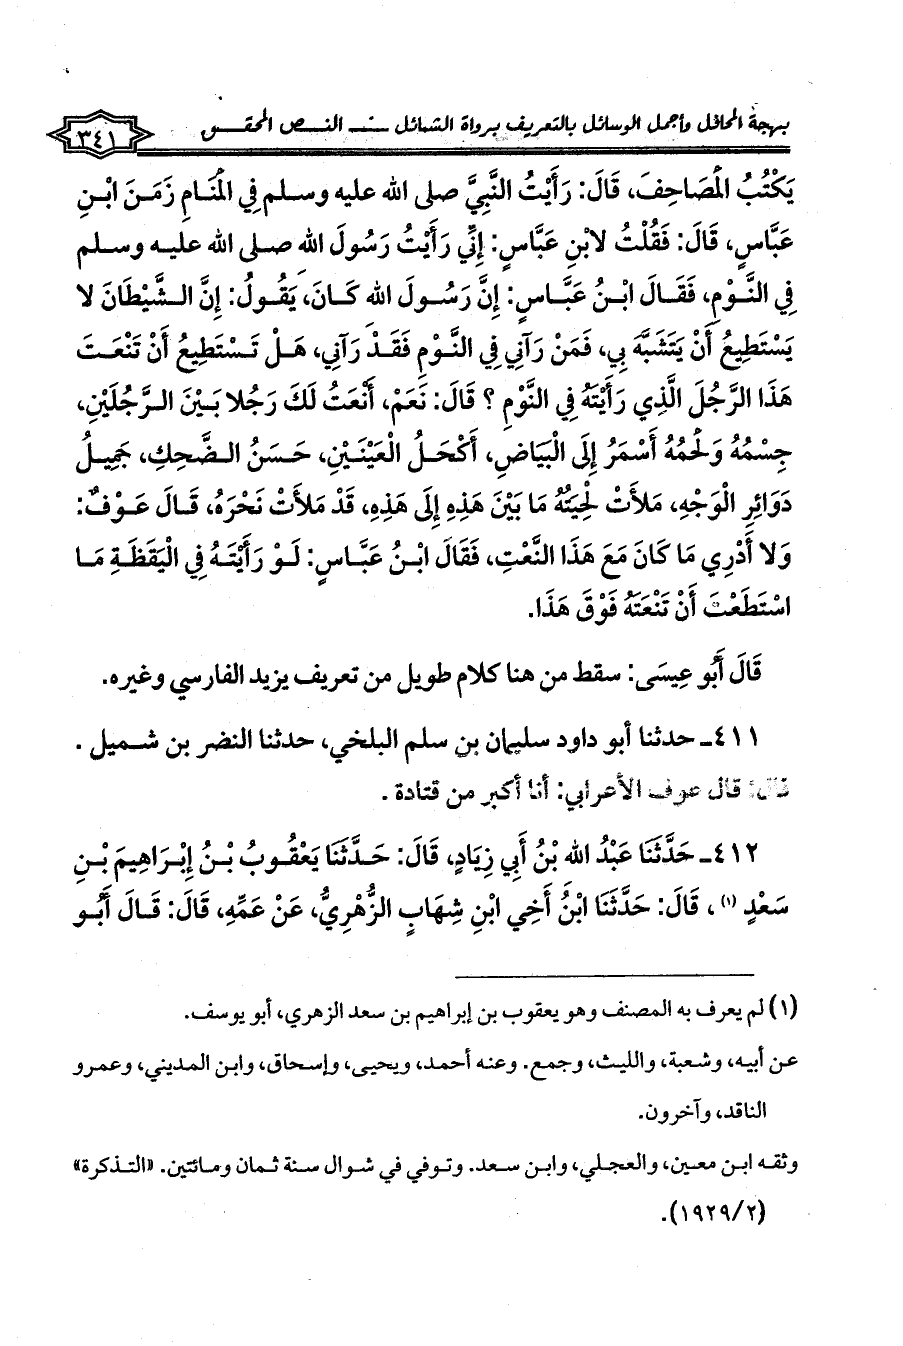 بهجة المحافل وأجمل الوسائل بالتعريف برواة الشمائل ــ النــص المحقــق
٣٤١
يَكْتُبُ المْصَاحِفَ، قَالَ: رَأَيْتُ النَّبِيَّ صلى الله عليه وسلم فِي المْنَامِ زَمَنَ ابْنِ
عَبَّاسٍ، قَالَ: فَقُلْتُ لابْنِ عَبَّاسٍ: إِنِّي رَأَيْتُ رَسُولَ الله صلى الله عليه وسلم
فِي النَّوْمِ، فَقَالَ ابْنُ عَبَّاسٍ: إِنَّ رَسُولَ الله كَانَ، يَقُولُ: إِنَّ الشَّيْطَانَ لا
يَسْتَطِيعُ أَنْ يَتَشَبَّهَ بِي، فَمَنْ رَآنِي فِي النَّوْمِ فَقَدْ رَآنِي، هَلْ تَسْتَطِيعُ أَنْ تَنْعَتَ
هَذَا الرَّجُلَ الَّذِي رَأَيْتَهُ فِي النَّوْمِ ؟ قَالَ: نَعَمْ، أَنْعَتُ لَكَ رَجُلا بَيْنَ الرَّجُلَيْنِ،
جِسْمُهُ وَلَحْمُهُ أَسْمَرُ إِلَى الْبَيَاضِ، أَكْحَلُ الْعَيْنَيْنِ، حَسَنُ الضَّحِكِ، جَمِيلُ
دَوَائِرِ الْوَجْهِ، مَلأَتْ لِحْيَتُهُ مَا بَيْنَ هَذِهِ إِلَى هَذِهِ، قَدْ مَلأَتْ نَحْرَهُ، قَالَ عَوْفٌ:
وَلا أَدْرِي مَا كَانَ مَعَ هَذَا النَّعْتِ، فَقَالَ ابْنُ عَبَّاسٍ: لَوْ رَأَيْتَهُ فِي الْيَقَظَةِ مَا
اسْتَطَعْتَ أَنْ تَنْعَتَهُ فَوْقَ هَذَا.
قَالَ أَبُو عِيسَى: سقط من هنا كلام طويل من تعريف يزيد الفارسي وغيره.
٤١١ـ حدثنا أبو داود سليمان بن سلم البلخي، حدثنا النضر بن شميل .
قال: قال عوف الأعرابي: أنا أكبر من قتادة .
٤١٢ـ حَدَّثَنَا عَبْدُ الله بْنُ أَبِي زِيَادٍ، قَالَ: حَدَّثَنَا يَعْقُوبُ بْنُ إِبْرَاهِيمَ بْنِ
سَعْدٍ (١)، قَالَ: حَدَّثَنَا ابْنُ أَخِي ابْنِ شِهَابٍ الزُّهْرِيُّ، عَنْ عَمِّهِ، قَالَ: قَالَ أَبُو
(١) لم يعرف به المصنف وهو يعقوب بن إبراهيم بن سعد الزهري، أبو يوسف.
عن أبيه، وشعبة، والليث، وجمع. وعنه أحمد، ويحيى، وإسحاق، وابن المديني، وعمرو
الناقد، وآخرون.
وثقه ابن معين، والعجلي، وابن سعد. وتوفي في شوال سنة ثمان ومائتين. «التذكرة»
(١٩٢٩/٢).